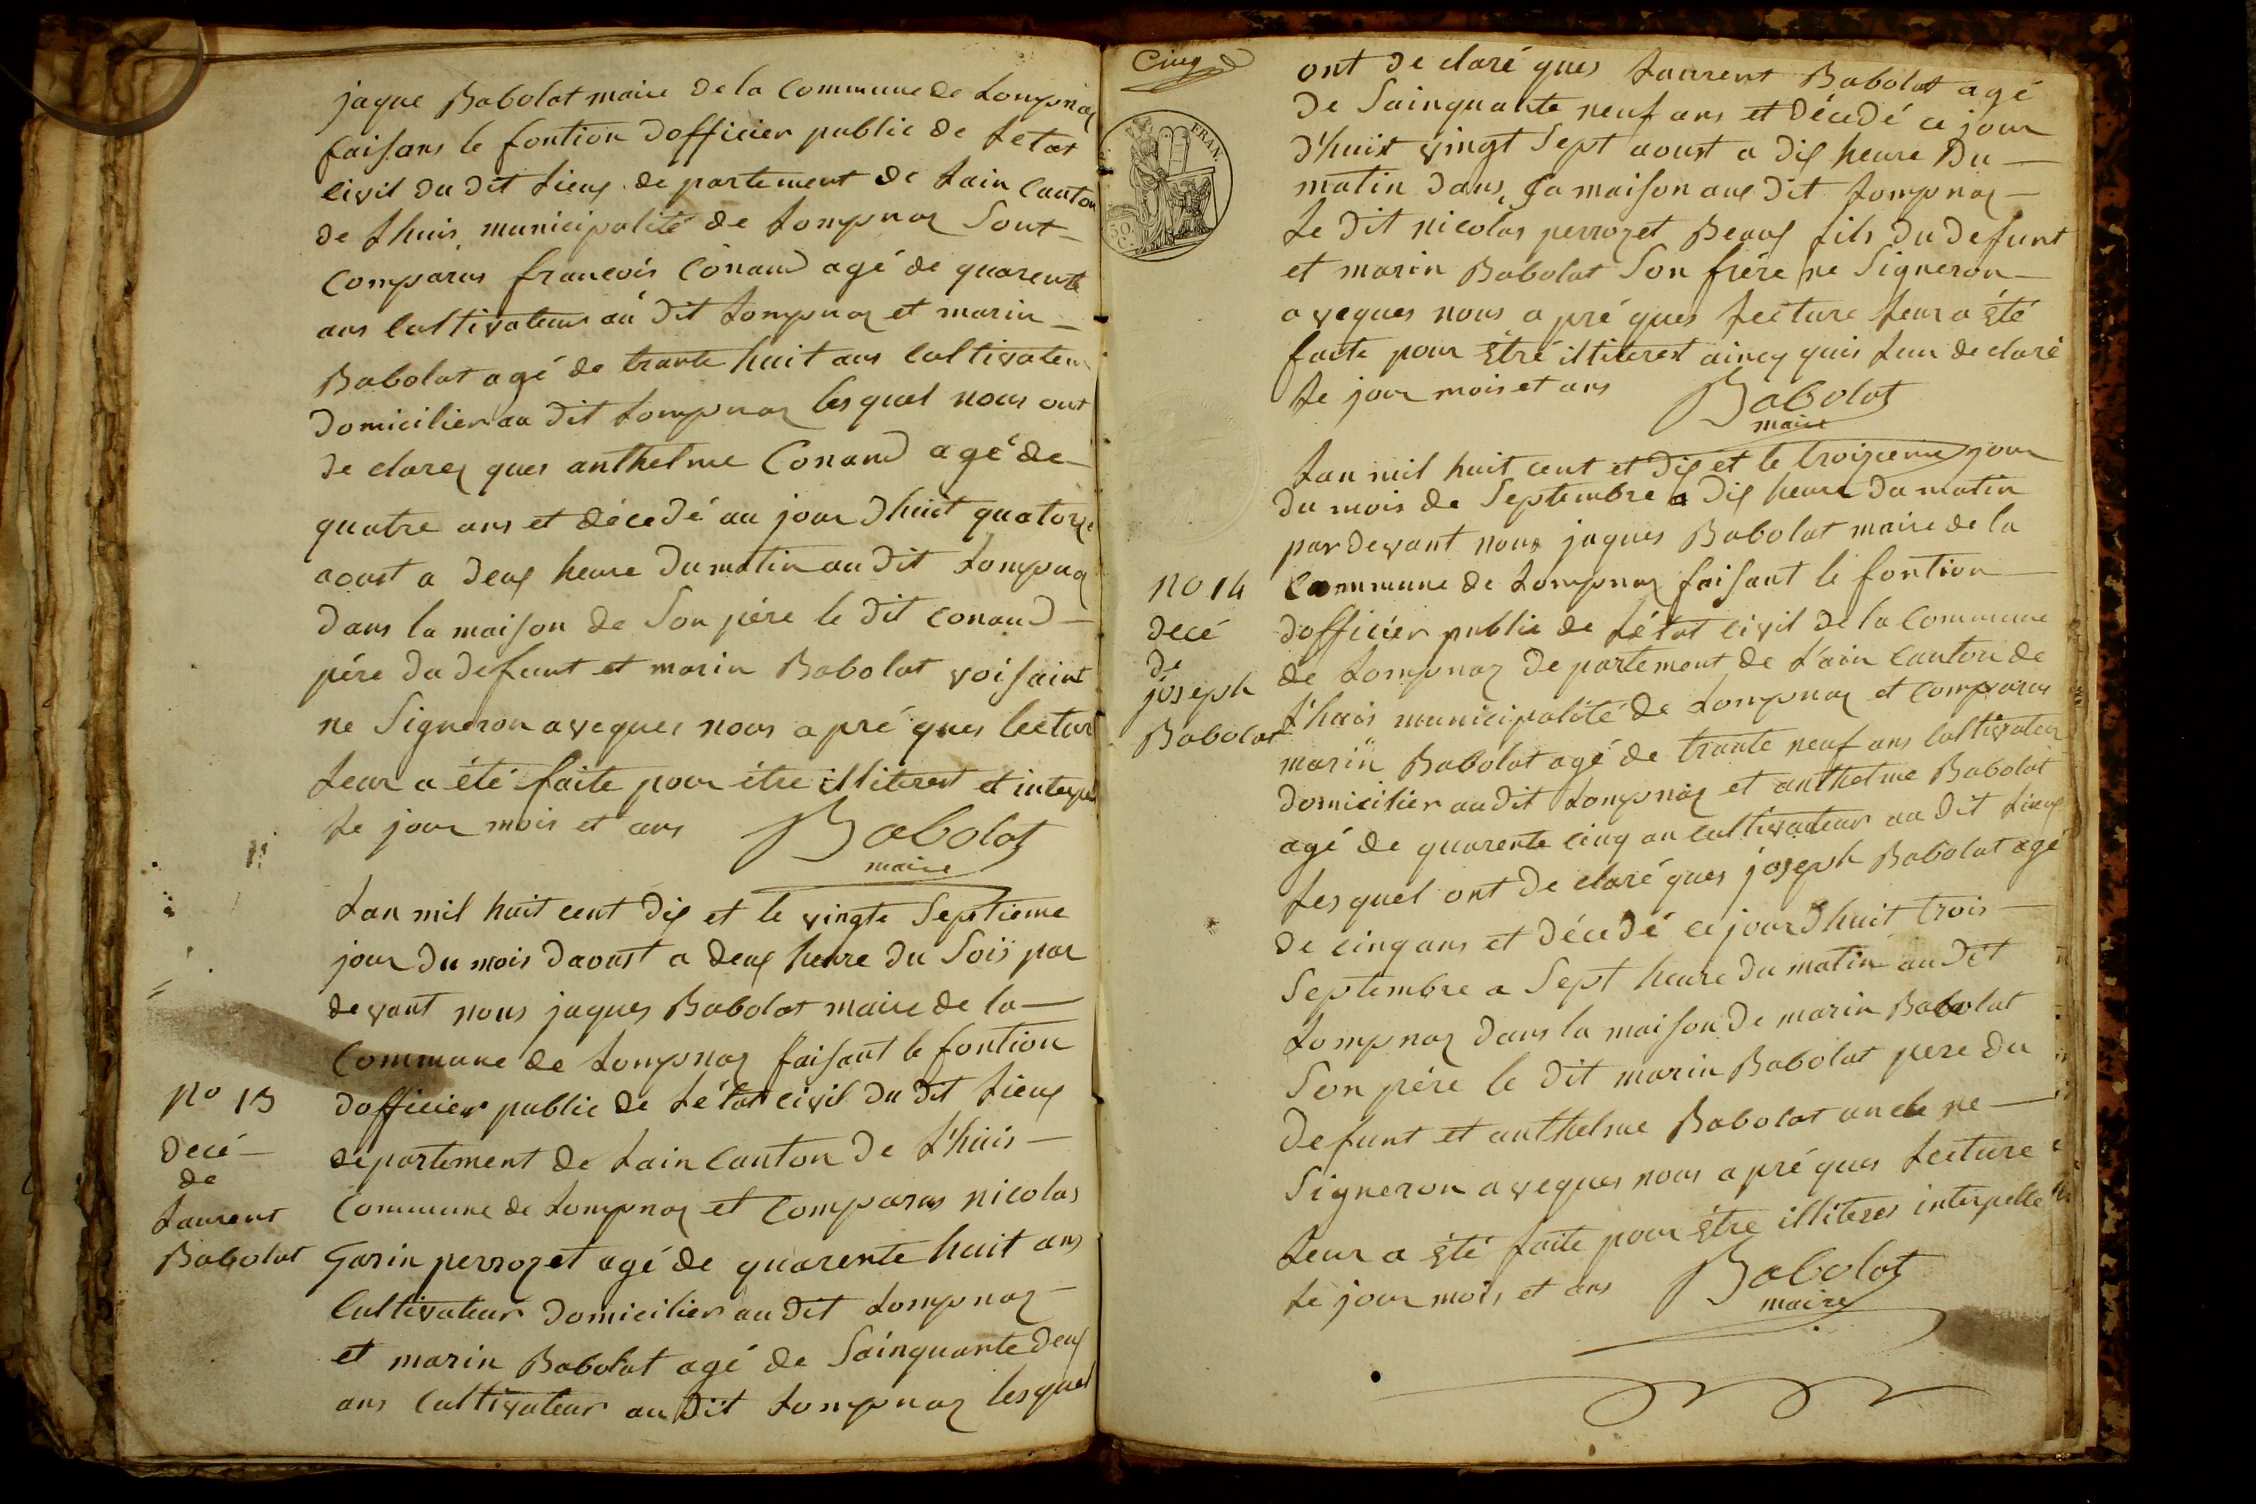 jaque Babolat maire de la Commune de Lompnaz
faisans le fontion dofficier public de Letat
civil du dit Lieux de partement de Lain Canton
de Lhuis municipalité de Lompnaz Sont
Comparus francois Conand agé de quarente
ans Cultivateur au dit Lompnaz et marin
Babolat agé de trante huit ans Cultivateur
Domicilier au dit Lompnaz les quel nous ont
de clarez ques anthelme Conand agé de
quatre ans et décedé au jour dhuit quatorze
aoust a deux heure du matin au dit Lompnaz
dans la maison de Son pére le dit Conand
pére du defunt et marin Babolat voisaint
ne Signeron aveques nous a pré ques lecture
Leur a été faite pour étre illiterest et interpe
Le jour mois et ans Babolat
maire
Lan mil huit cent dix et le vingte Septieme
jour du mois daoust a deux heure du Soir par
devant nous jaques Babolat maire de la
Commune de Lompnaz faisant le fontion
dofficier public de Létat civil du dit Lieux
departement de Lain Canton de L'huis
Commune de Lompnaz et Comparus nicolas
Garin perrozet agé de quarente huit ans
Cultivateur domicilier au dit Lompnaz
et marin Babolat agé de Sainquante deux
ans Cultivateur au dit Lompnaz lesquel
no 13
Decé
de
Laurent
Babolat
Cinq
FRAN.
50
C.
ont de claré ques Laurent Babolat agé
de Sainquante neuf ans et décedé ce jour
d'huit vingt Sept aoust a dix heure du
matin dans Sa maison aux dit Lompnaz
Le dit nicolas perrozet Beaux fils du defunt
et marin Babolat Son frére ne Signeron
aveques nous a pré ques Lecture Leur a été
faite pour étre illiterest aincy quis Lon de claré
Le jour mois et ans Babolat
maire
Lan mil huit cent et dix et le troizieme jour
du mois de Septembre a dix heure du matin
par devant nous jaques Babolat maire de la
Commune de Lompnaz faisant le fontion
dofficier public de Létat civil de la Commune
de Lompnaz de partement de L'ain Canton de
L'huis municipalité de Lompnaz et Comparus
marin Babolat agé de trante neuf ans Cultivateur
domicilier au dit Lompnaz et anthelme Babolat
agé de quarente cinq an Cultivateur au dit Lieux
Les quel ont de claré ques joseph Babolat agé
de cinq ans et décedé ce jour dhuit trois
Septembre a Sept heure du matin au dit
Lompnaz dans la maison de marin Babolat
Son pére le dit marin Babolat pere du
defunt et anthelme Babolat oncle ne
Signeron aveques nous a pré ques Lecture
Leur a été faite pour étre illiteres interpelle
Le jour mois et ans Babolat
maire
no 14
decé
de
joseph
Babolat